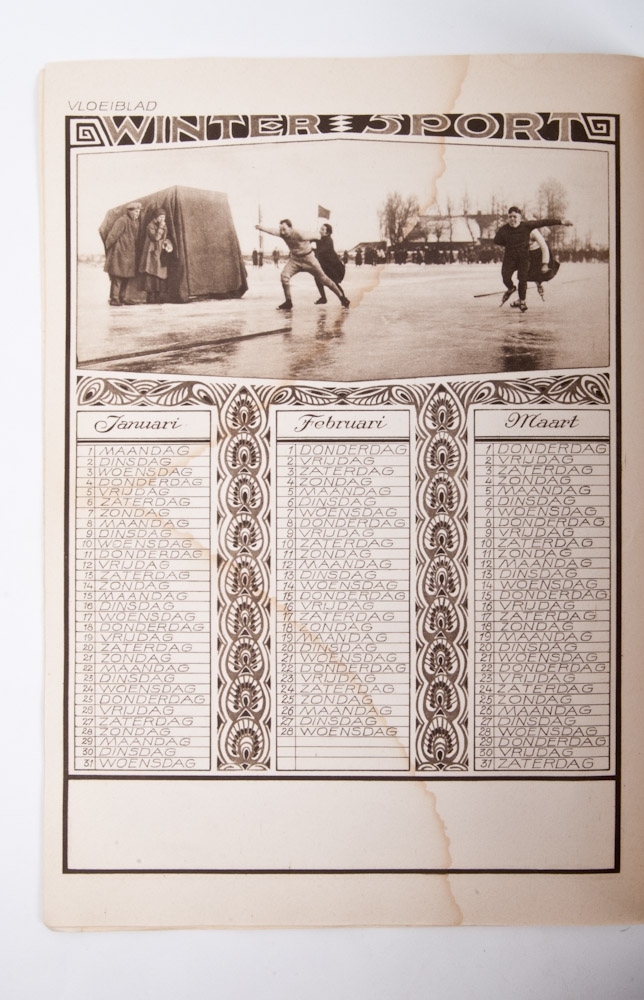 VLOEIBLAD
WINTER SPORT
Januari
1 MAANDAG
2 DINSDAG
3 WOENSDAG
4 DONDERDAG
5 VRIJDAG
6 ZATERDAG
7 ZONDAG
8 MAANDAG
9 DINSDAG
10 WOENSDAG
11 DONDERDAG
12 VRIJDAG
13 ZATERDAG
14 ZONDAG
15 MAANDAG
16 DINSDAG
17 WOENSDAG
18 DONDERDAG
19 VRIJDAG
20 ZATERDAG
21 ZONDAG
22 MAANDAG
23 DINSDAG
24 WOENSDAG
25 DONDERDAG
26 VRIJDAG
27 ZATERDAG
28 ZONDAG
29 MAANDAG
30 DINSDAG
31 WOENSDAG
Februari
1 DONDERDAG
2 VRIJDAG
3 ZATERDAG
4 ZONDAG
5 MAANDAG
6 DINSDAG
7 WOENSDAG
8 DONDERDAG
9 VRIJDAG
10 ZATERDAG
11 ZONDAG
12 MAANDAG
13 DINSDAG
14 WOENSDAG
15 DONDERDAG
16 VRIJDAG
17 ZATERDAG
18 ZONDAG
19 MAANDAG
20 DINSDAG
21 WOENSDAG
22 DONDERDAG
23 VRIJDAG
24 ZATERDAG
25 ZONDAG
26 MAANDAG
27 DINSDAG
28 WOENSDAG
Maart
1 DONDERDAG
2 VRIJDAG
3 ZATERDAG
4 ZONDAG
5 MAANDAG
6 DINSDAG
7 WOENSDAG
8 DONDERDAG
9 VRIJDAG
10 ZATERDAG
11 ZONDAG
12 MAANDAG
13 DINSDAG
14 WOENSDAG
15 DONDERDAG
16 VRIJDAG
17 ZATERDAG
18 ZONDAG
19 MAANDAG
20 DINSDAG
21 WOENSDAG
22 DONDERDAG
23 VRIJDAG
24 ZATERDAG
25 ZONDAG
26 MAANDAG
27 DINSDAG
28 WOENSDAG
29 DONDERDAG
30 VRIJDAG
31 ZATERDAG